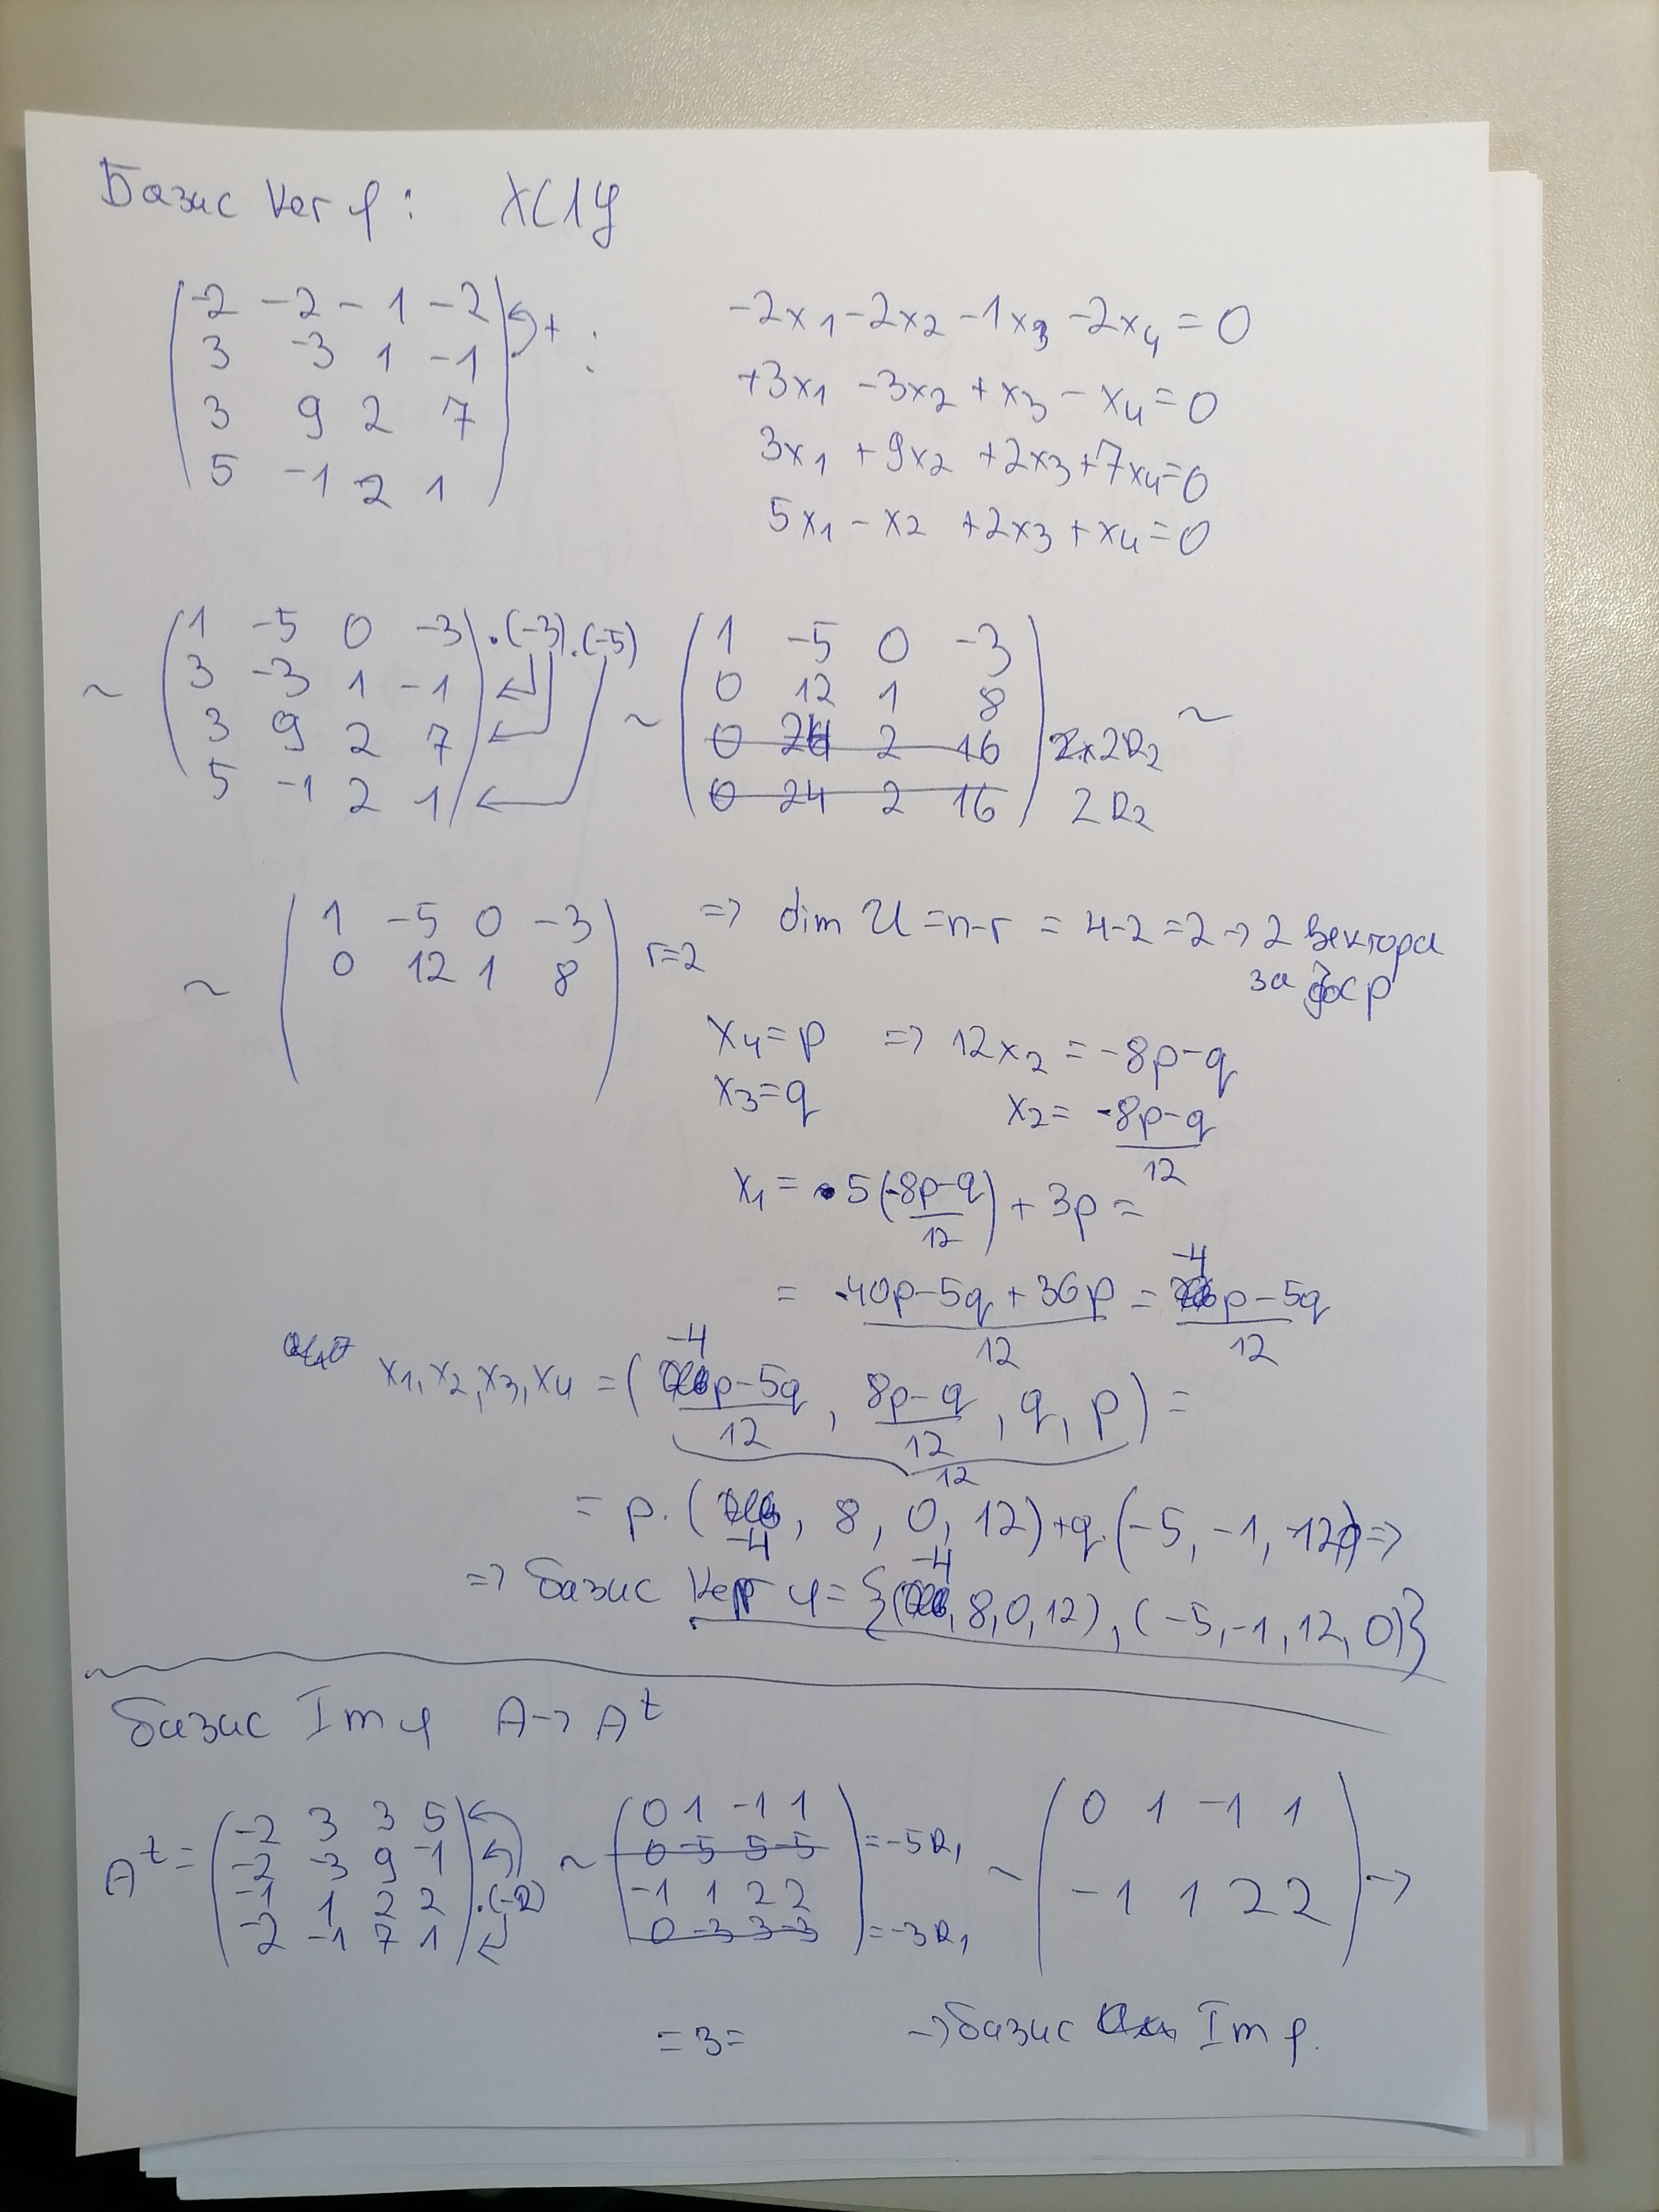 Базис Ker φ: ХСЛУ
-2 -2 -1 -2 +
3 -3 1 -1
3 9 2 7
5 -1 2 1
-2x1 -2x2 -1x3 -2x4 = 0
+3x1 -3x2 + x3 - x4 = 0
3x1 + 9x2 + 2x3 + 7x4 = 0
5x1 - x2 + 2x3 + x4 = 0
1 -5 0 -3 .(-3) .(-5)
~ 3 -3 1 -1
3 9 2 7
5 -1 2 1
1 -5 0 -3
~ 0 12 1 8 ~
0 24 2 16 2R2
0 24 2 16 2R2
1 -5 0 -3
~ 0 12 1 8 r=2
=> dim U = n-r = 4-2 = 2 -> 2 вектора
за фср
x4 = p => 12x2 = -8p-q
x3 = q x2 = -8p-q
12
x1 = 5(-8p-q) + 3p =
12
= -40p-5q+36p = -4p-5q
12 12
x1, x2, x3, x4 = (-4p-5q, 8p-q, q, p) =
12 12
12
= p.(-4, 8, 0, 12) + q.(-5, -1, 12, 0) =>
=> базис Ker φ = {(-4, 8, 0, 12), (-5, -1, 12, 0)}
базис Im φ A -> A^t
A^t = -2 3 3 5
-2 -3 9 -1
-1 1 2 2 .(-2)
-2 -1 7 1
~ 0 1 -1 1
0 -5 5 -5 = -5R1
-1 1 2 2
0 -3 3 -3 = -3R1
~ 0 1 -1 1
-1 1 2 2 ->
= 3 = -> базис Im φ.